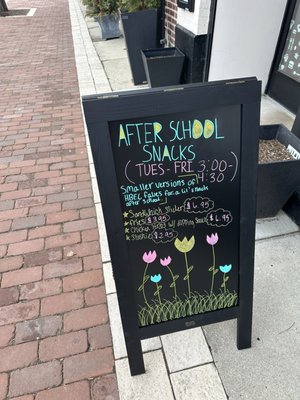 AFTER SCHOOL
SNACKS
(TUES-FRI 3:00-
4:30)
Smaller versions of
HBEC faves for a lil' snack
after school!
★ Sandwich Slider $6.95
★ Fries $3.95
★ Chicken w/ dipping sauce $6.95
★ $2.95